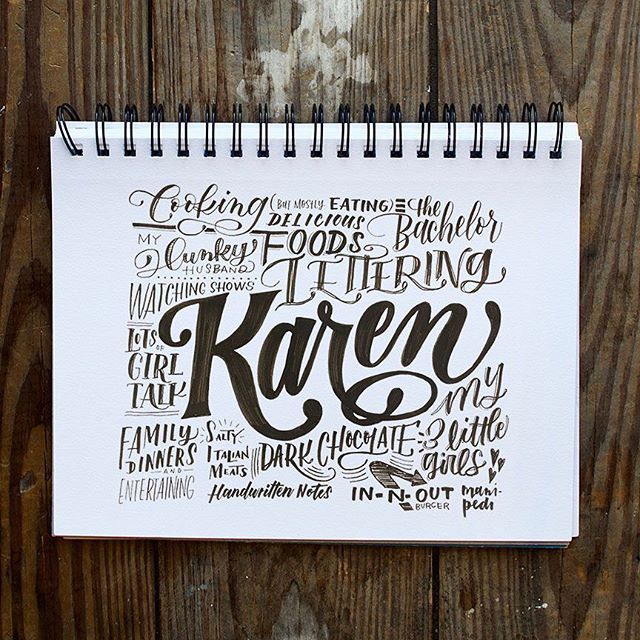 Cooking (BUT MOSTLY EATING)
DELICIOUS
FOODS
the
Bachelor
MY
Hunky
HUSBAND
LETTERING
WATCHING SHOWS
Karen
LOTS OF
GIRL
TALK
my
3 little
girls
FAMILY
DINNERS
AND
ENTERTAINING
SALTY
ITALIAN
MEATS
DARK CHOCOLATE
Handwritten Notes
IN-N-OUT
BURGER
mani-
pedi